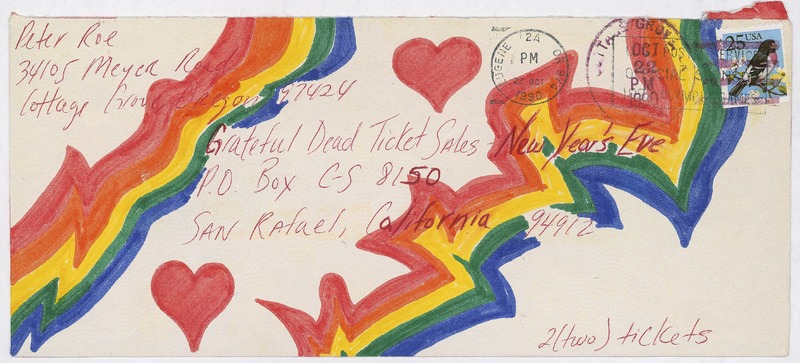 Peter Roe
34105 Meyer Road
Cottage Grove Oregon 97424
EUGENE OR
2A
PM
22 OCT
1990
OCT
22
PM
25 USA
Grateful Dead Ticket Sales - New Year's Eve
P.O. Box C-S 8150
SAN Rafael, California 94912
2 (two) tickets